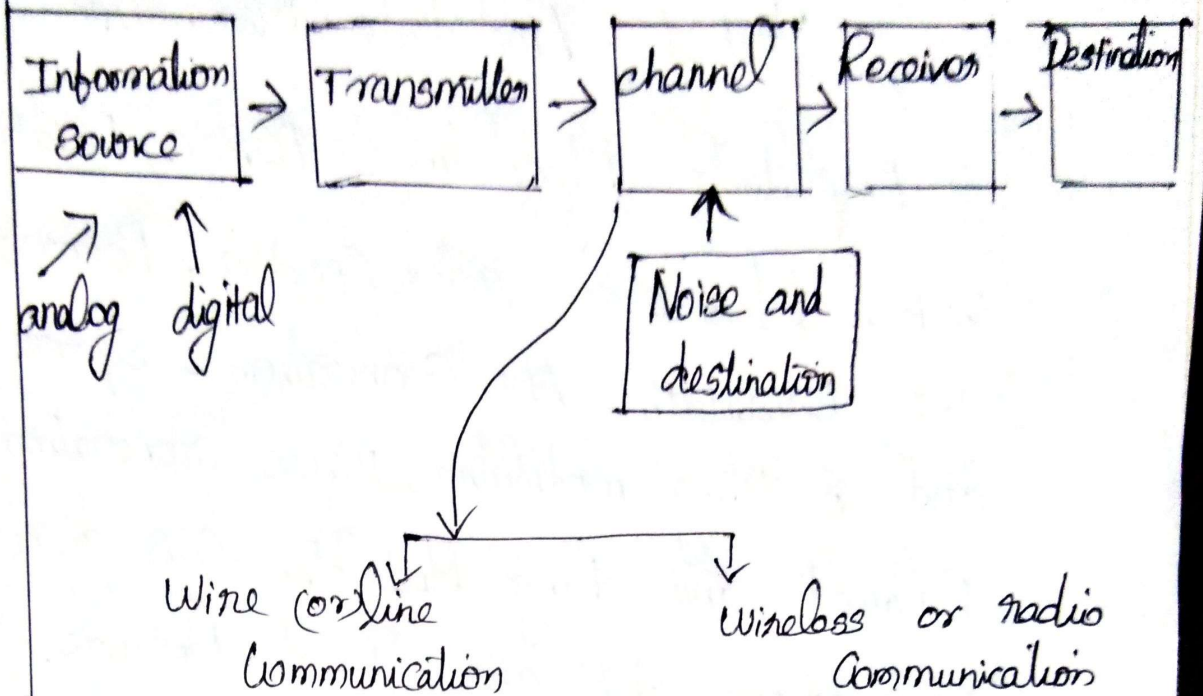 Information
source
Transmitter
channel
Receiver
Destination
analog digital
Noise and
destination
Wire (or) line
Communication
wireless or radio
Communication